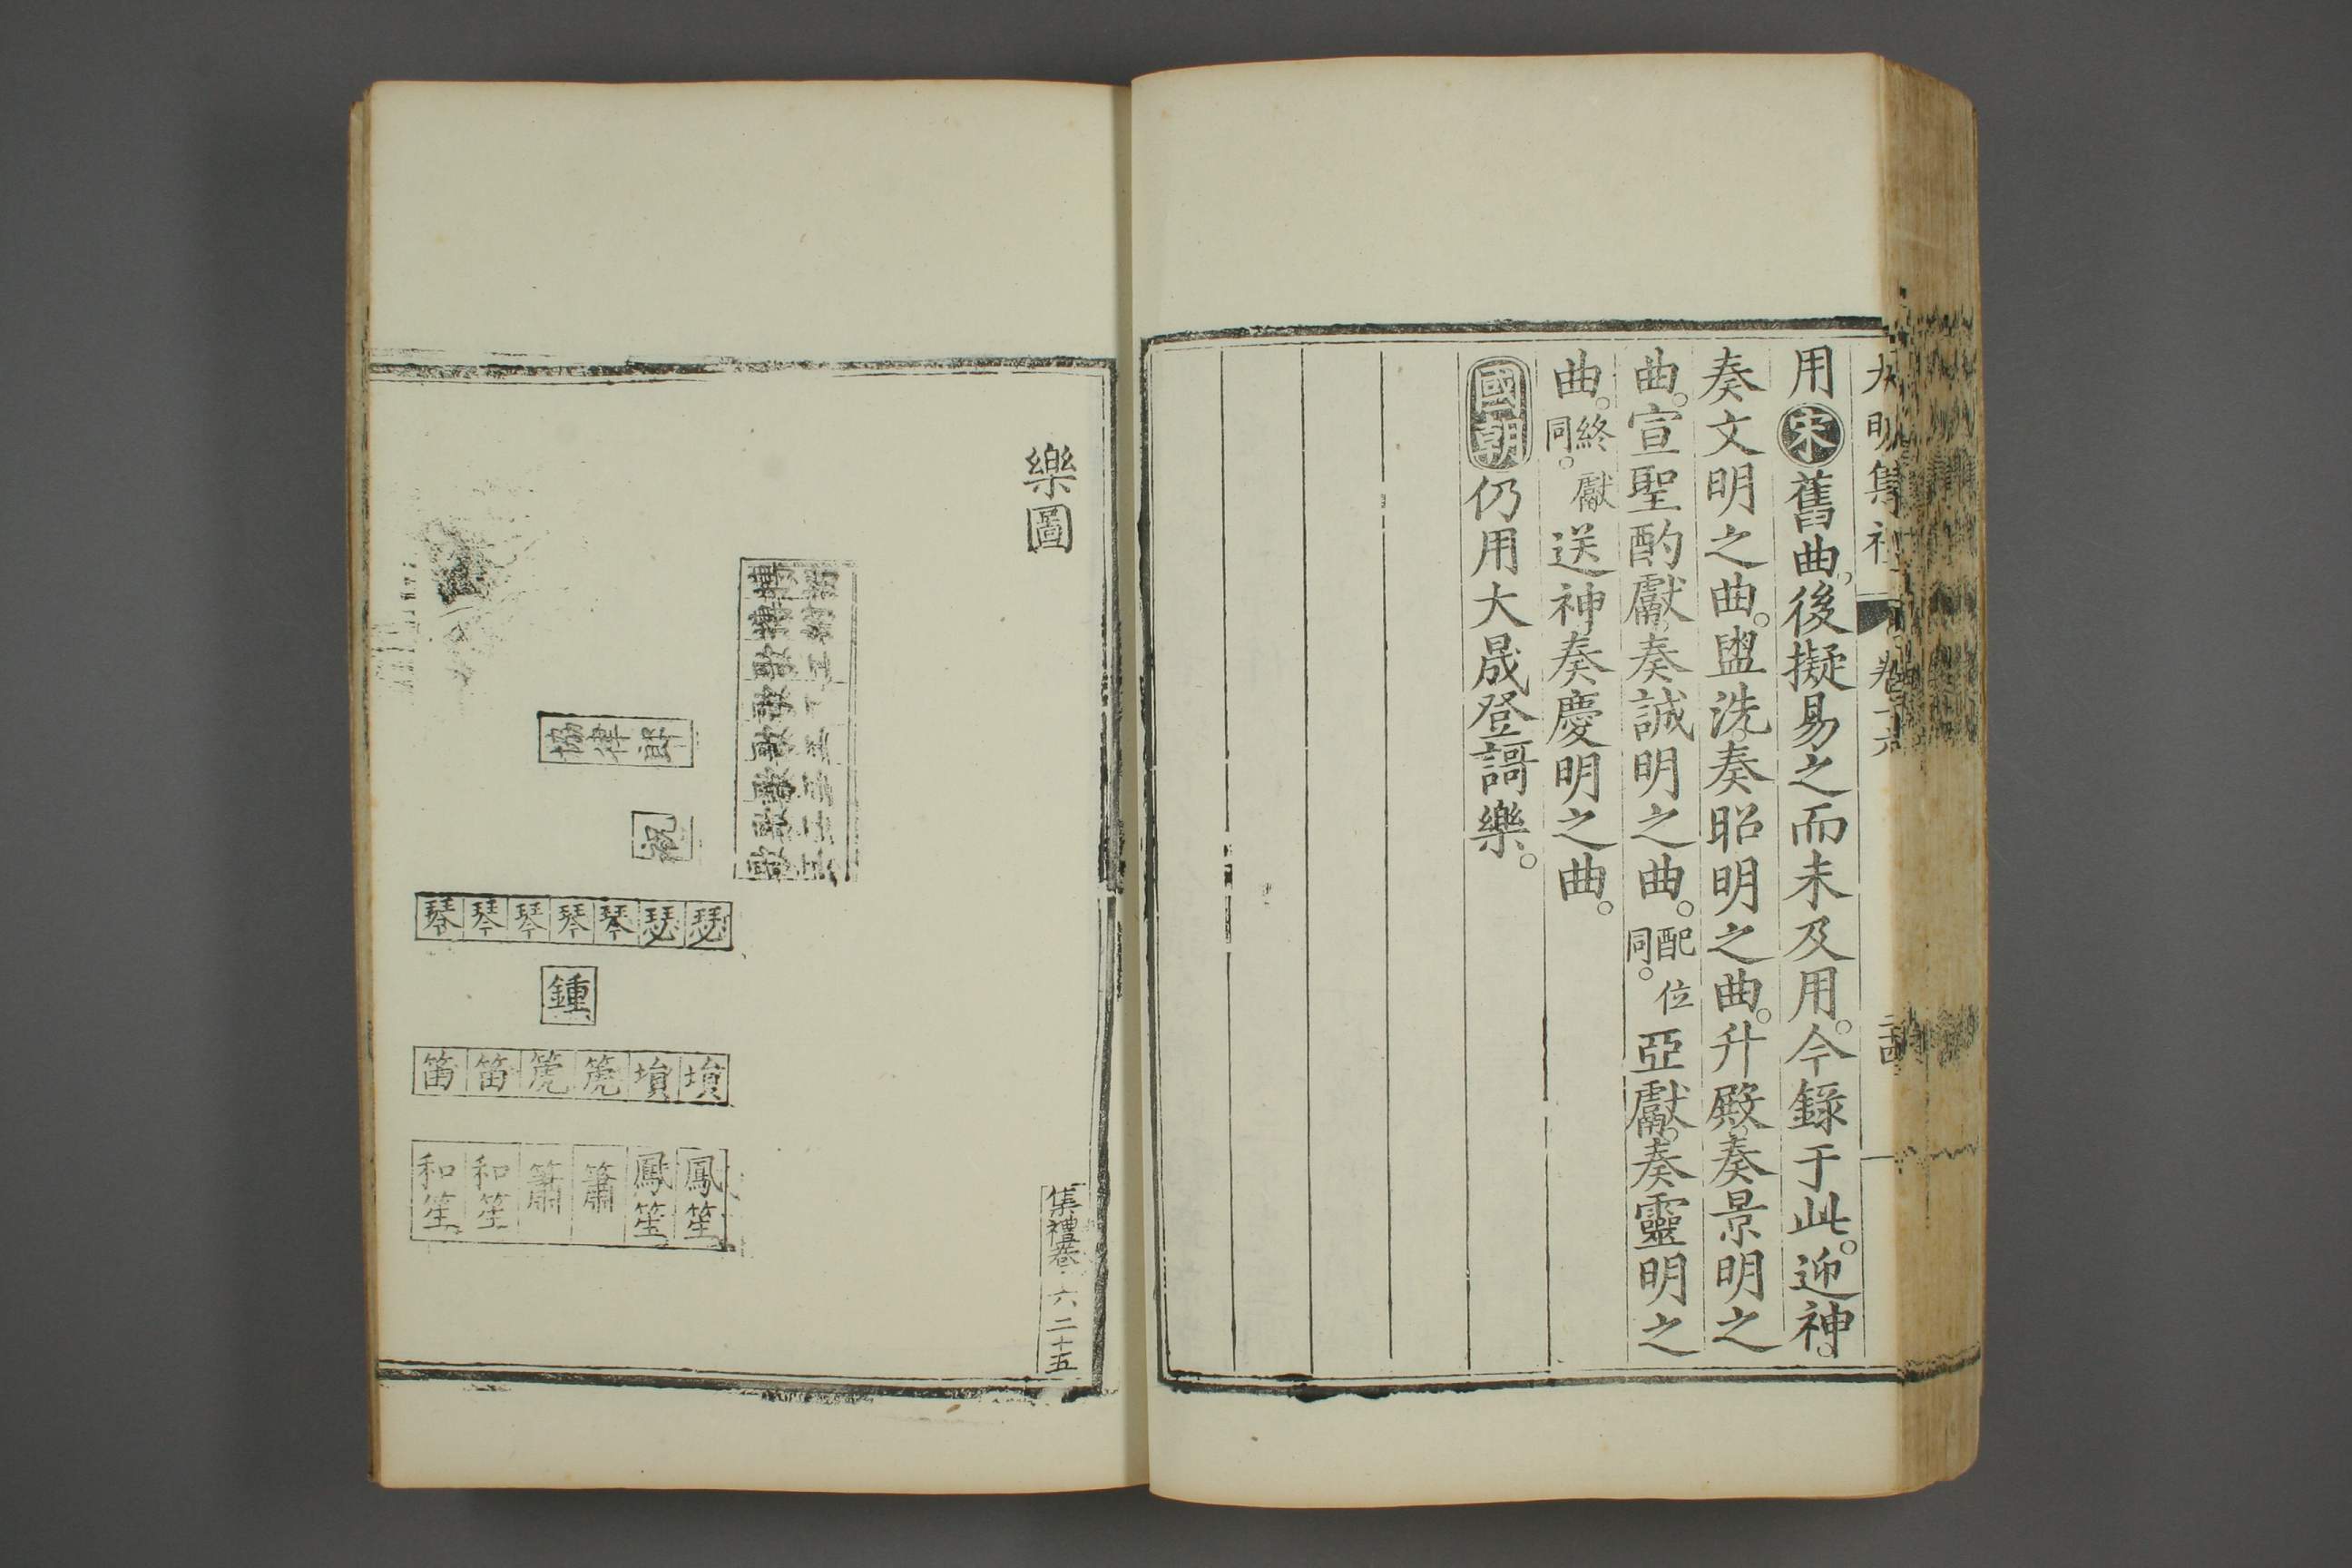 大明集禮 卷十六 二十四
用宋舊曲後擬易之而未及用。今錄于此。迎神。
奏文明之曲。盥洗。奏昭明之曲。升殿。奏景明之
曲。宣聖酌獻。奏誠明之曲。配位同。亞獻。奏靈明之
曲。終獻同。送神奏慶明之曲。
國朝仍用大晟登謌樂。
樂圖
集禮卷 六 二十五
協律郎
柷
琴 琴 琴 琴 琴 瑟 瑟
鍾
笛 笛 篪 篪 塤 塤
和笙 和笙 簫 簫 鳳笙 鳳笙